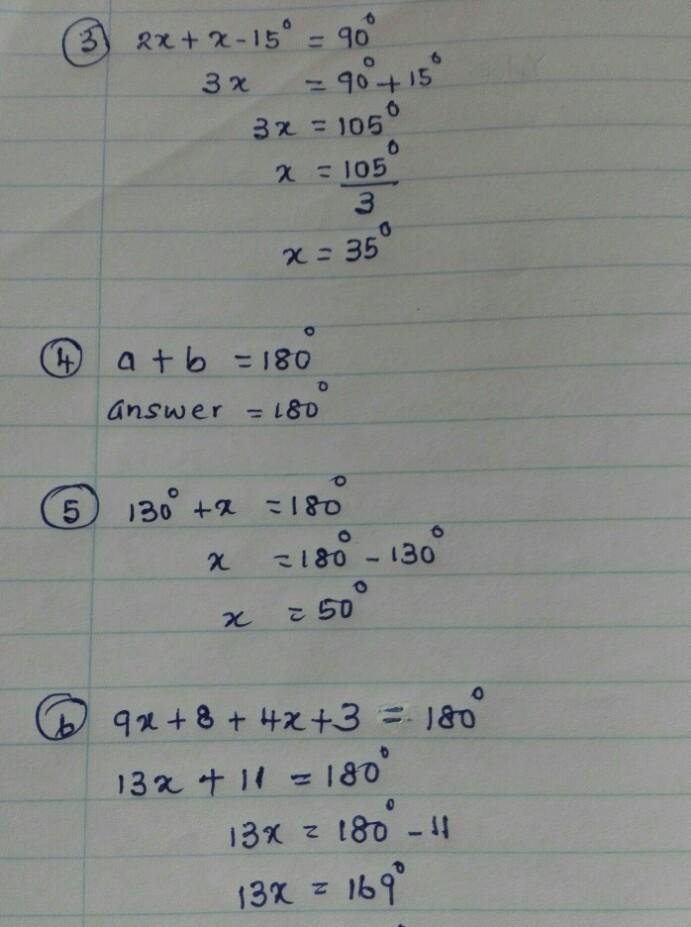 ③ 2x + x - 15° = 90°
3x = 90° + 15°
3x = 105°
x = 105°
3
x = 35°
④ a + b = 180°
answer = 180°
⑤ 130° + x = 180°
x = 180° - 130°
x = 50°
⑥ 9x + 8 + 4x + 3 = 180°
13x + 11 = 180°
13x = 180° - 11
13x = 169°